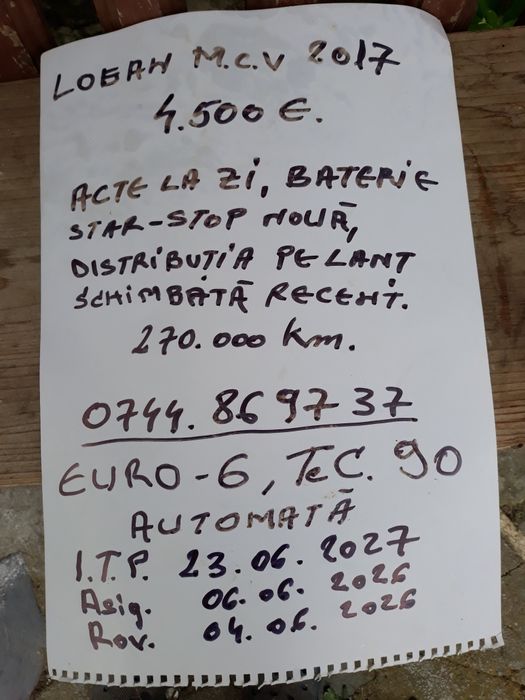 LOGAN M.C.V 2017
4.500 €.
ACTE LA ZI, BATERIE
STAR-STOP NOUĂ,
DISTRIBUȚIA PE LANȚ
SCHIMBATĂ RECENT.
270.000 km.
0744.869737
EURO-6, TCe. 90
AUTOMATĂ
I.T.P. 23.06.2027
Asig. 06.06.2026
Rov. 04.06.2026